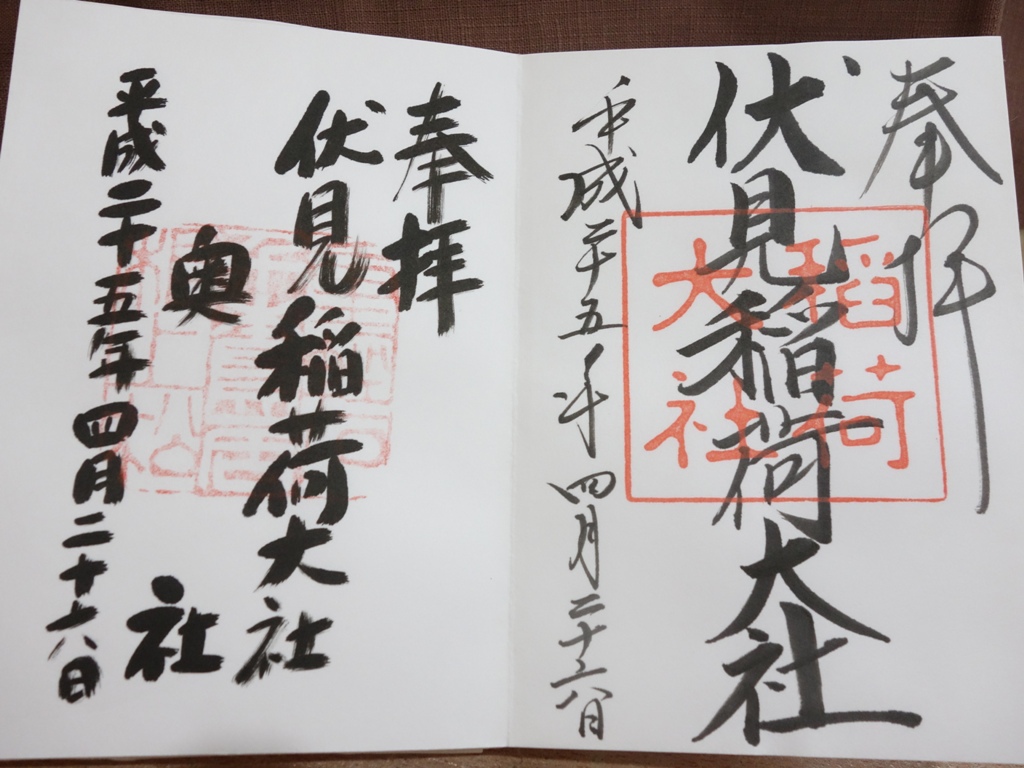 奉拝
伏見稲荷大社
稲荷
大社
平成二十五年四月二十六日
奉拝
伏見稲荷大社
奥社
平成二十五年四月二十六日